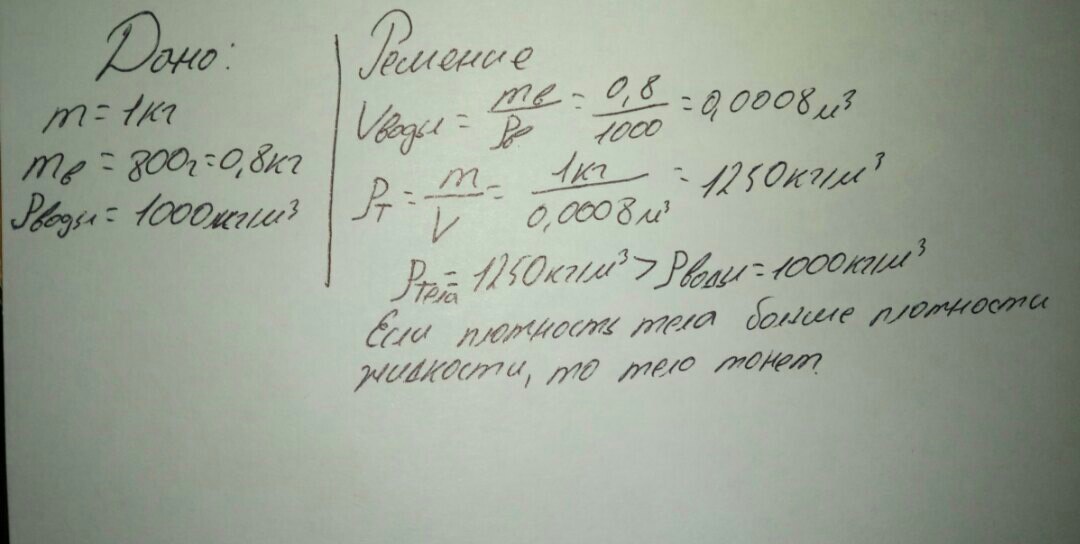 Дано:
m = 1кг
mв = 800г = 0,8кг
ρводы = 1000кг/м³
Решение
Vводы = mв/ρв = 0,8/1000 = 0,0008м³
ρт = m/V = 1кг/0,0008м³ = 1250кг/м³
ρтела = 1250кг/м³ > ρводы = 1000кг/м³
Если плотность тела больше плотности
жидкости, то тело тонет.